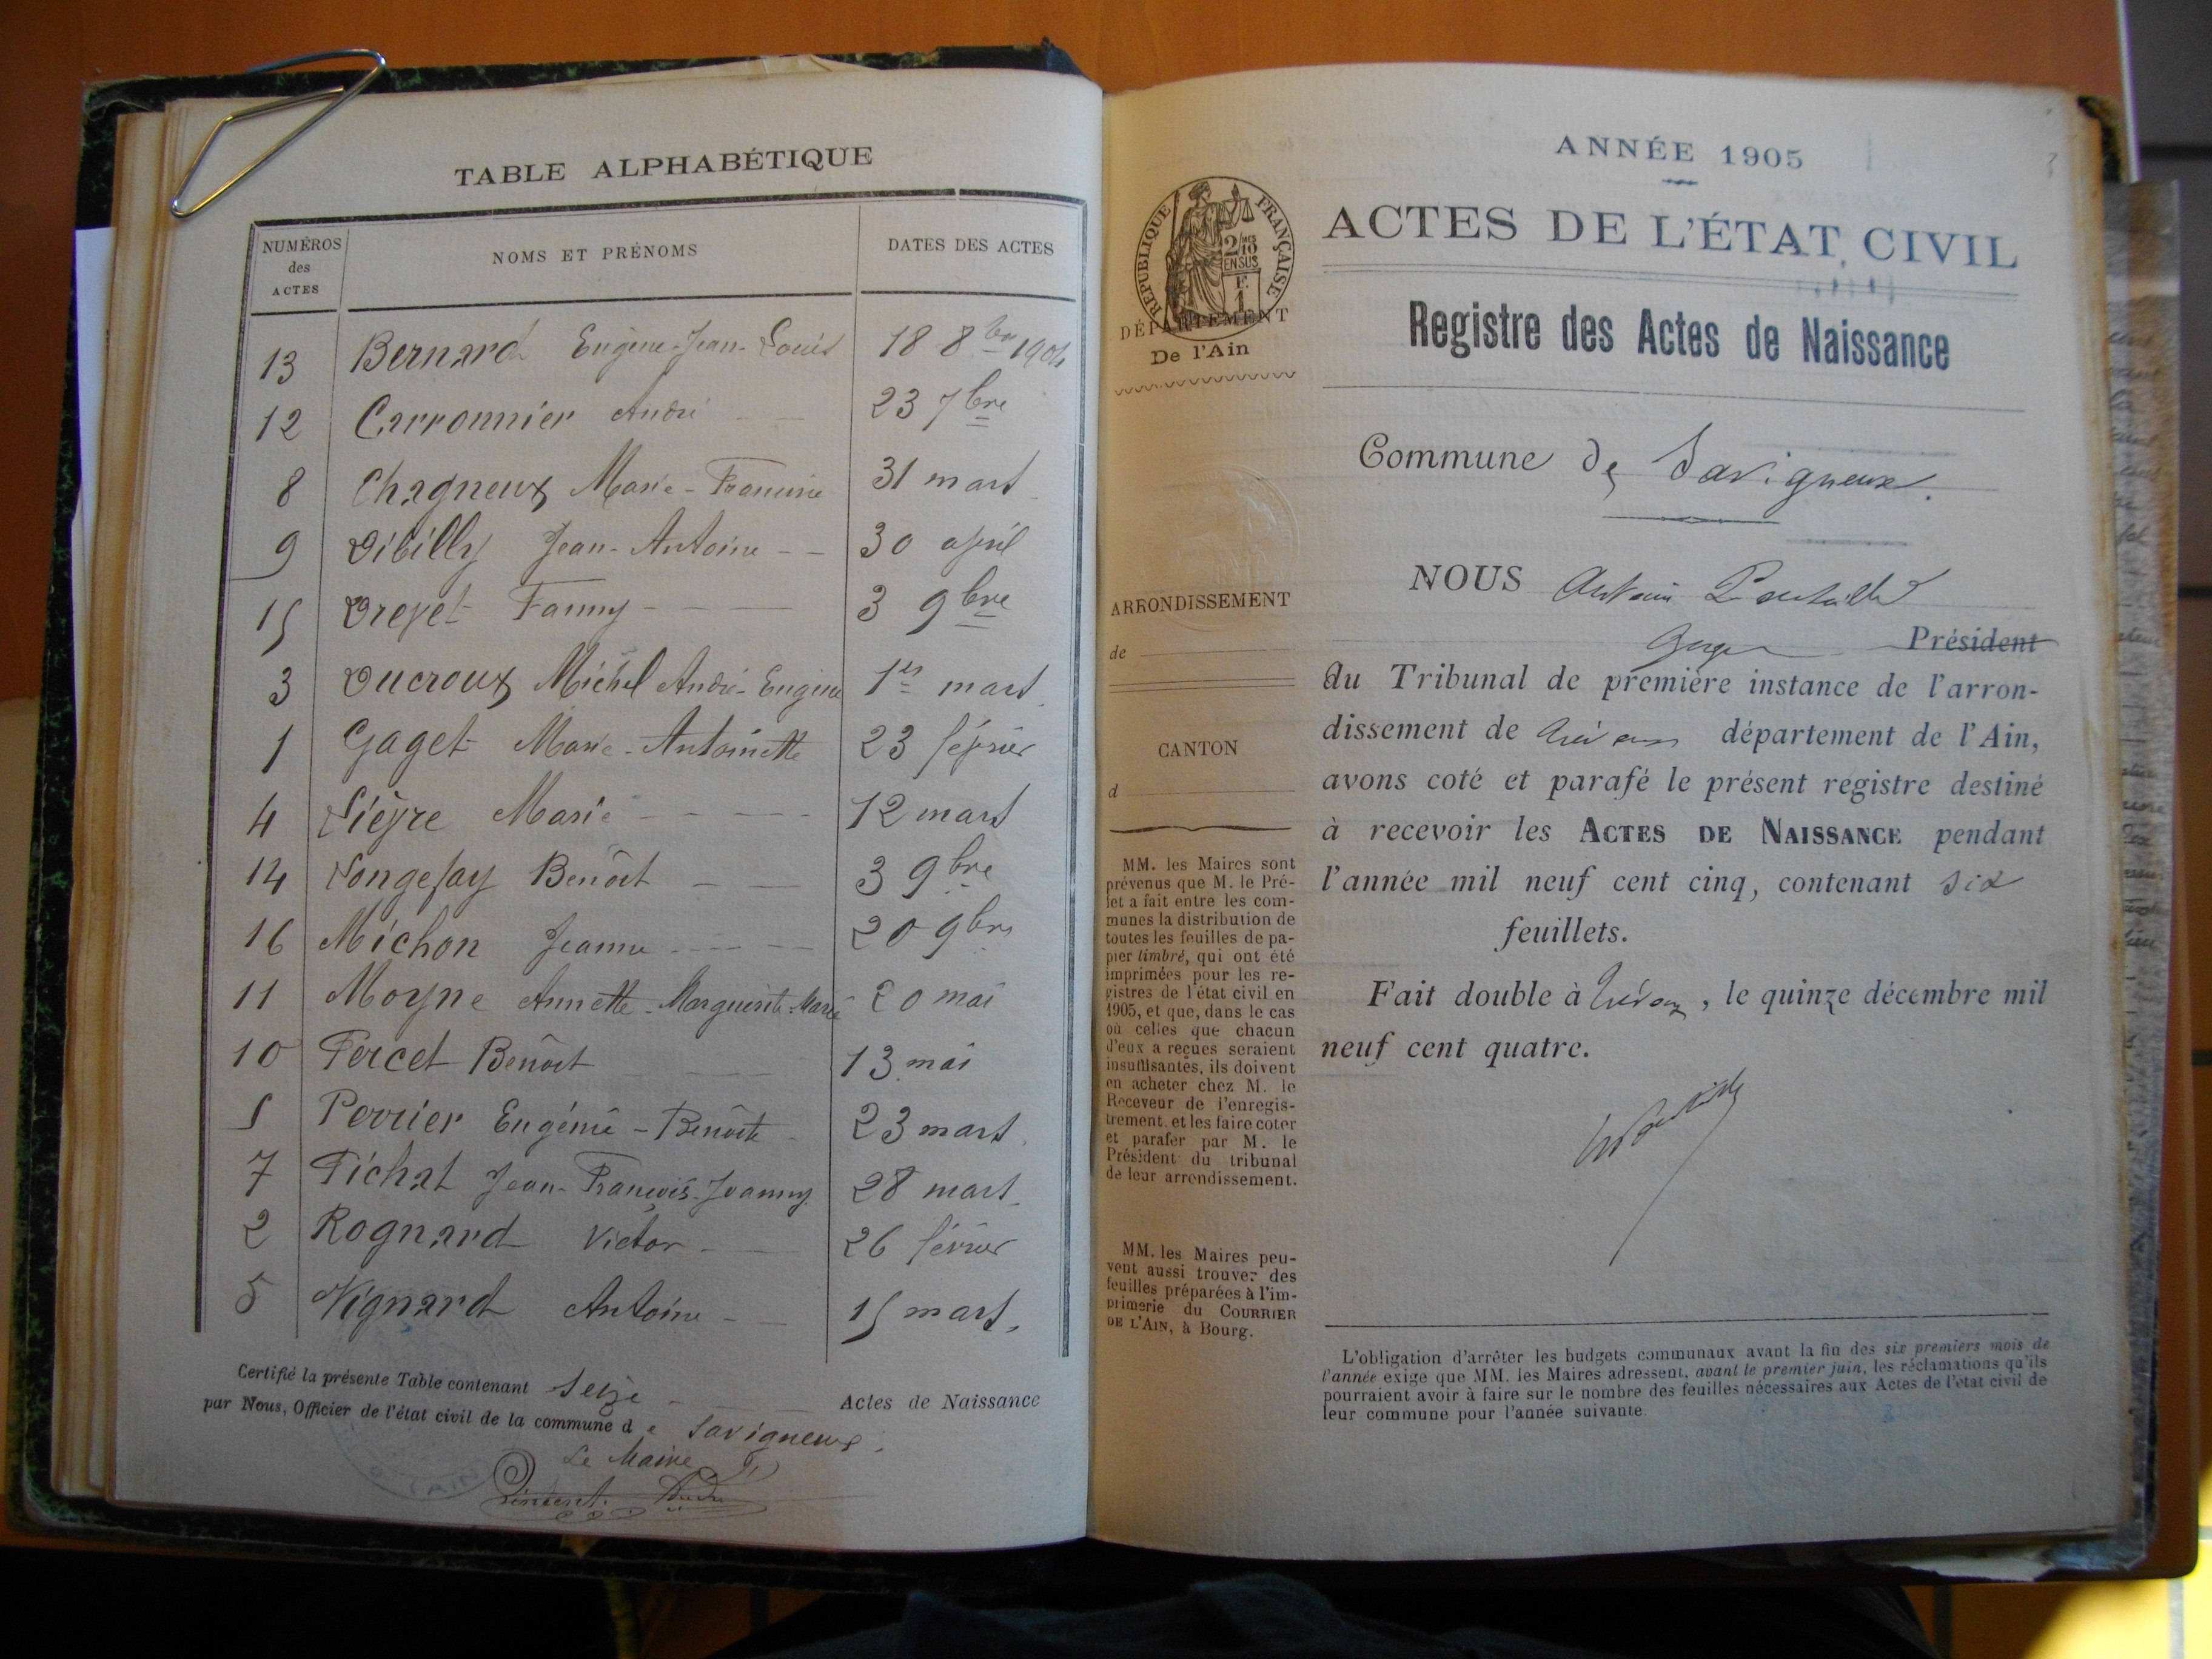 TABLE ALPHABÉTIQUE
NUMÉROS des ACTES NOMS ET PRÉNOMS DATES DES ACTES
13 Bernard Eugène-Jean-Louis 18 8bre 1904
12 Carronnier André 23 7bre
8 Chagneux Marie-Francine 31 mars
9 Dibilly Jean-Antoine 30 avril
15 Drevet Fanny 3 9bre
3 Ducroux Michel André-Eugène 1er mars
1 Gaget Marie-Antoinette 23 février
4 Lièvre Marie 12 mars
14 Longefay Benoît 3 9bre
16 Michon Jeanne 20 9bre
11 Moyne Annette-Marguerite-Marie 20 mai
10 Percet Benoît 13 mai
5 Perrier Eugénie-Benoîte 23 mars
7 Pichat Jean-François-Joanny 28 mars
2 Rognard Victor 26 février
5 Vignard Antoine 15 mars
Certifié la présente Table contenant seize Actes de Naissance
par Nous, Officier de l'état civil de la commune de Savigneux.
Le Maire
ANNÉE 1905
ACTES DE L'ÉTAT CIVIL
Registre des Actes de Naissance
RÉPUBLIQUE FRANÇAISE
2/10 EN SUS
F. 1
DÉPARTEMENT
De l'Ain
Commune de Savigneux.
ARRONDISSEMENT
de
CANTON
d
NOUS Antoine
Juge Président
du Tribunal de première instance de l'arron-
dissement de Trévoux département de l'Ain,
avons coté et parafé le présent registre destiné
à recevoir les ACTES DE NAISSANCE pendant
l'année mil neuf cent cinq, contenant six
feuillets.
Fait double à Trévoux, le quinze décembre mil
neuf cent quatre.
MM. les Maires sont
prévenus que M. le Pré-
fet a fait entre les com-
munes la distribution de
toutes les feuilles de pa-
pier timbré, qui ont été
imprimées pour les re-
gistres de l'état civil en
1905, et que, dans le cas
où celles que chacun
d'eux a reçues seraient
insuffisantes, ils doivent
en acheter chez M. le
Receveur de l'enregis-
trement et les faire coter
et parafer par M. le
Président du tribunal
de leur arrondissement.
MM. les Maires peu-
vent aussi trouver des
feuilles préparées à l'im-
primerie du COURRIER
DE L'AIN, à Bourg.
L'obligation d'arrêter les budgets communaux avant la fin des six premiers mois de
l'année exige que MM. les Maires adressent, avant le premier juin, les réclamations qu'ils
pourraient avoir à faire sur le nombre des feuilles nécessaires aux Actes de l'état civil de
leur commune pour l'année suivante.